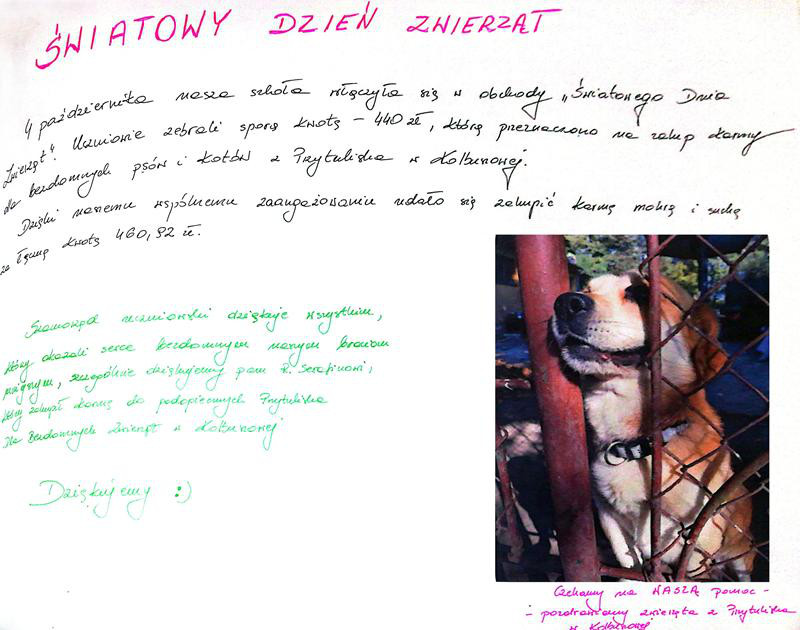 ŚWIATOWY DZIEŃ ZWIERZĄT
4 października nasza szkoła włączyła się w obchody „Światowego Dnia
Zwierząt". Uczniowie zebrali sporą kwotę – 440 zł, którą przeznaczono na zakup karmy
dla bezdomnych psów i kotów z Przytuliska w Kolbuszowej.
Dzięki naszemu wspólnemu zaangażowaniu udało się zakupić karmę mokrą i suchą
za łączną kwotę 460,92 zł.
Samorząd uczniowski dziękuje wszystkim,
którzy okazali serce bezdomnym naszym braciom
mniejszym, szczególnie dziękujemy pani R. Serafinowi,
który zakupił karmę do podopiecznych Przytuliska
Dla Bezdomnych Zwierząt w Kolbuszowej
Dziękujemy :)
Czekamy na NASZĄ pomoc -
- pozdrawiamy zwierzęta z Przytuliska
w Kolbuszowej